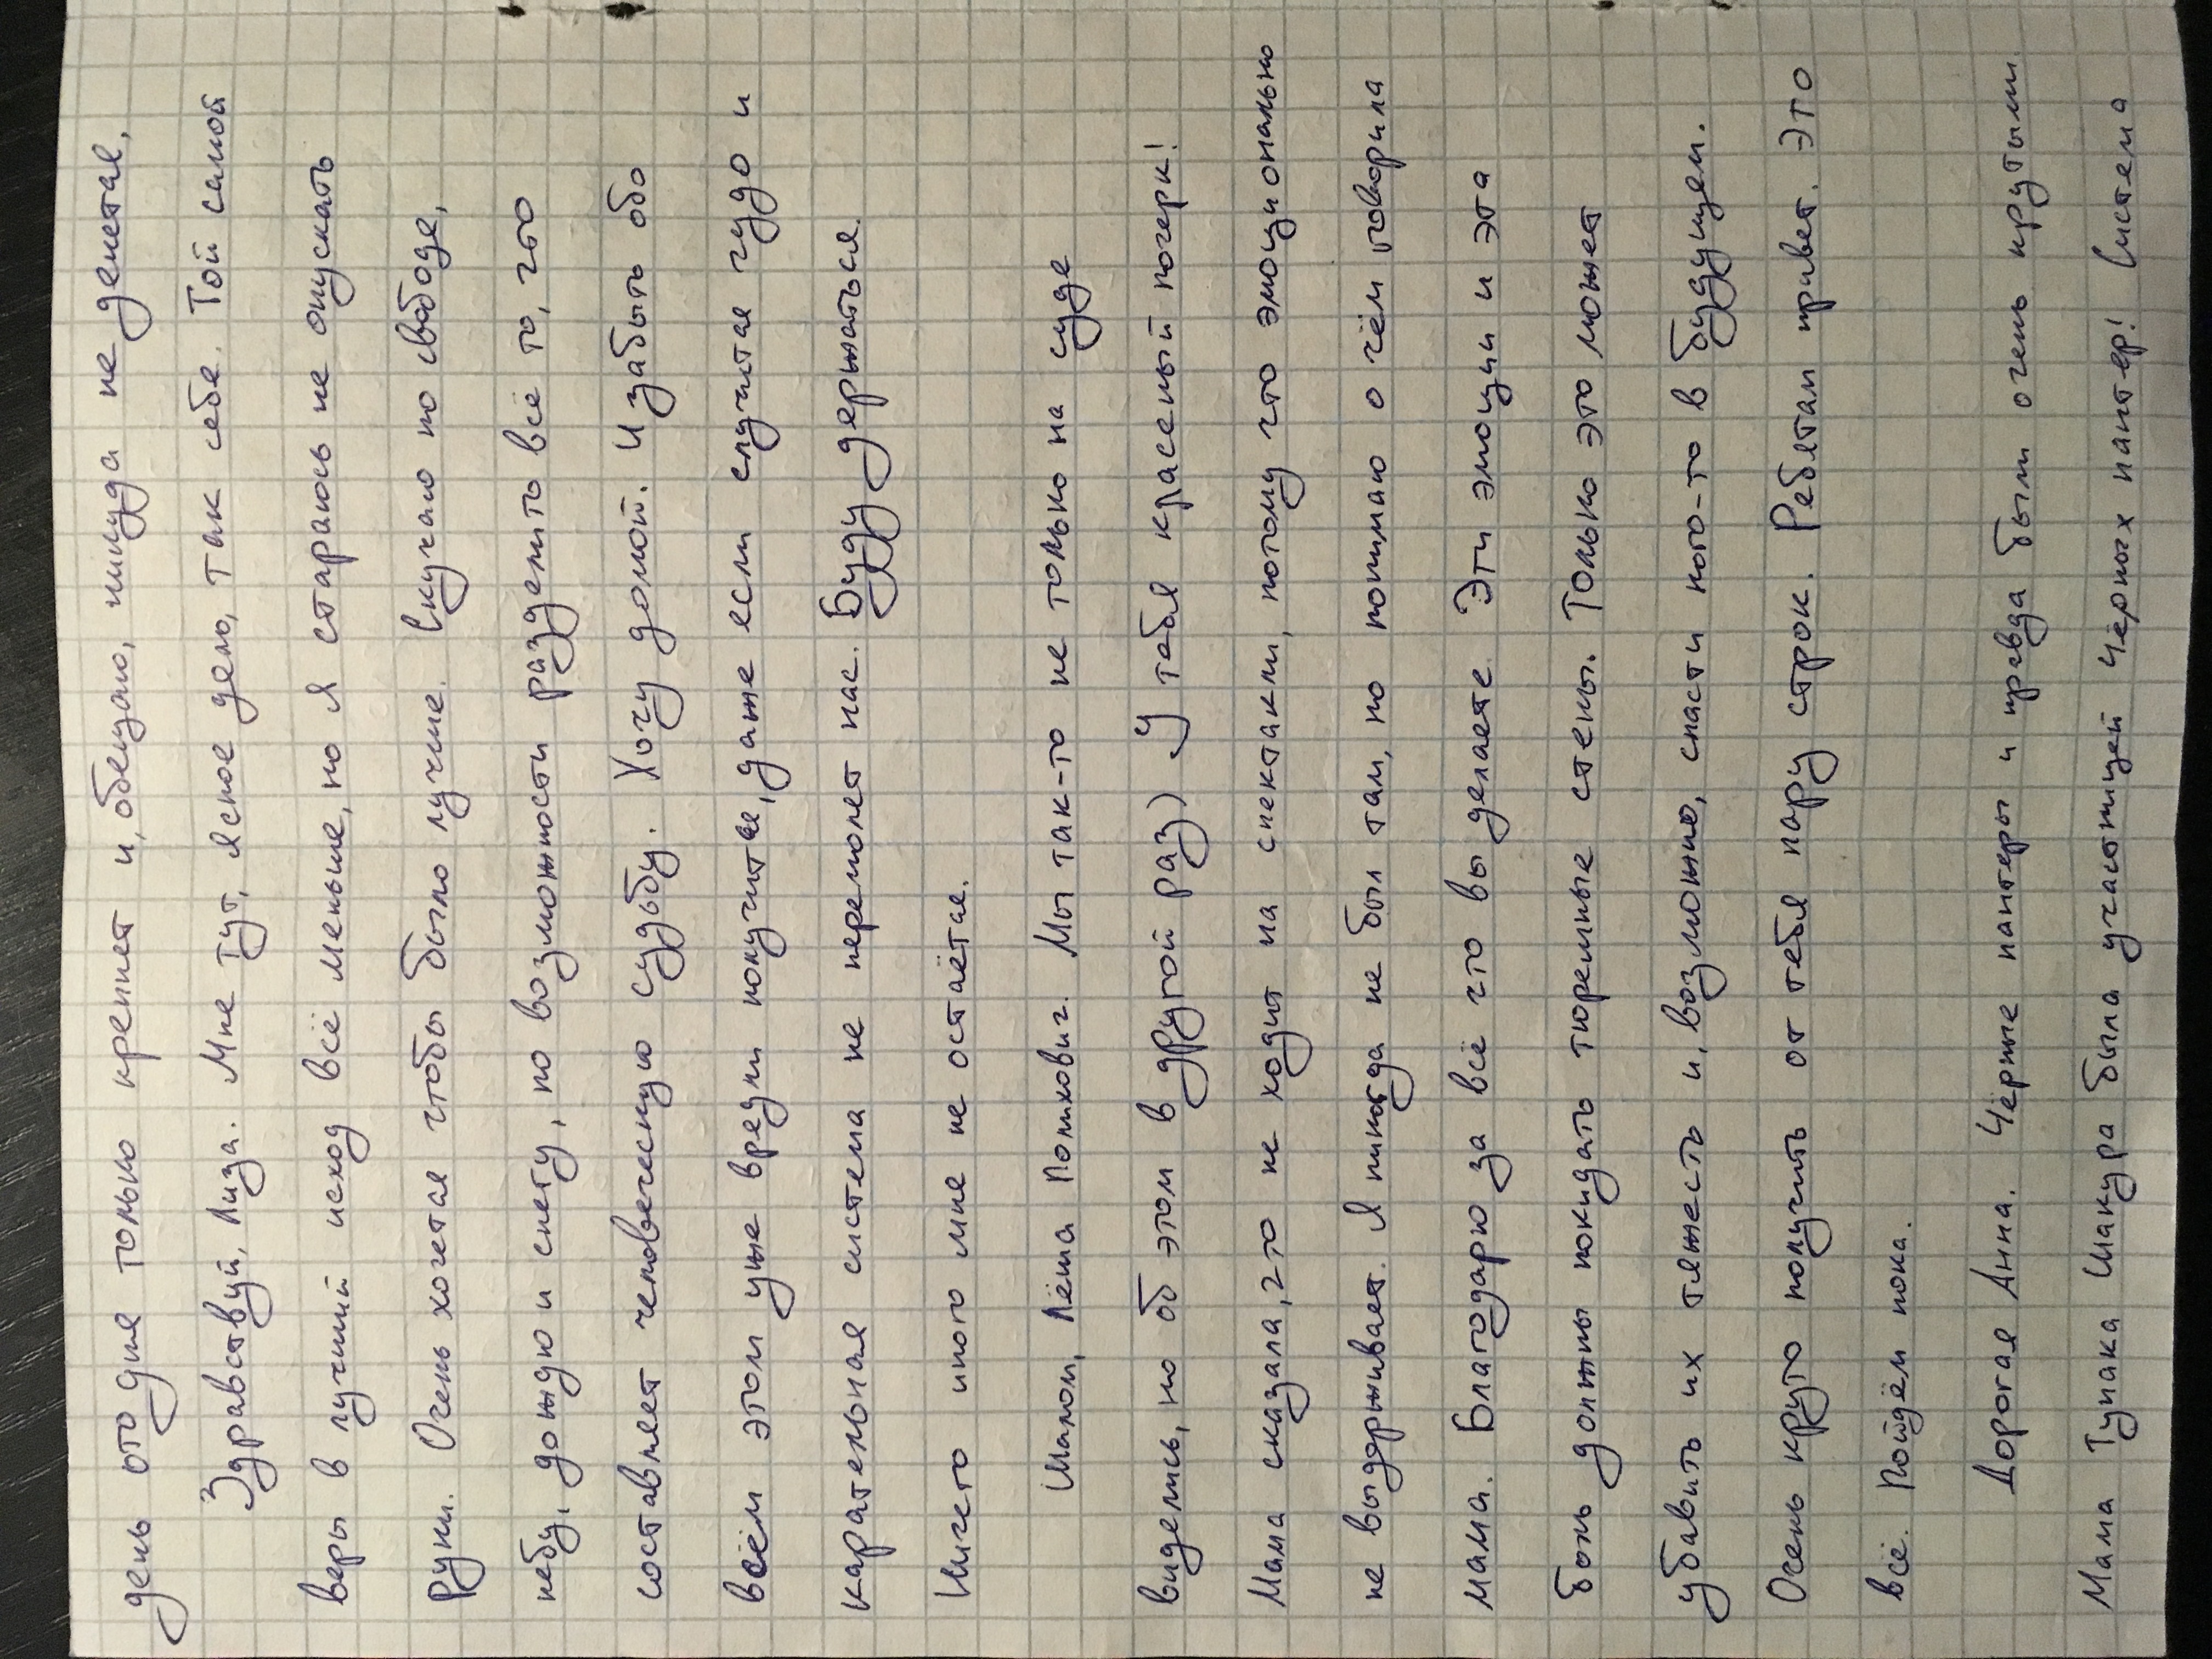 день ото дня только крепнет и, обещаю, никуда не денется.
Здравствуй, Лиза. Мне тут, ясное дело, так себе. Той самой
веры в лучший исход всё меньше, но я стараюсь не опускать
руки. Очень хочется чтобы было лучше. Скучаю по свободе,
небу, дождю и снегу, по возможности разделить всё то, что
составляет человеческую судьбу. Хочу домой. И забыть обо
всём этом уже вредли получится, даже если случится чудо и
карательная система не перемолет нас. Буду держаться.
Ничего иного мне не остаётся.
Шалом, Лёша Полихович. Мы так-то не только на суде
виделись, но об этом в другой раз) У тебя красевый почерк!
Мама сказала, что не ходит на спектакли, потому что эмоционально
не выдерживает. Я никогда не был там, но понимаю о чём говорила
мама. Благодарю за всё что вы делаете. Эти эмоции и эта
боль должны покидать тюремные стены. Только это может
убавить их тяжесть и, возможно, спасти кого-то в будущем.
Очень круто получить от тебя пару строк. Ребятам привет. Это
всё. Пойдём пока.
Дорогая Анна. Чёрные пантеры и правда были очень крутыми.
Мама Тупака Шакура была участницей Чёрных пантер! Система